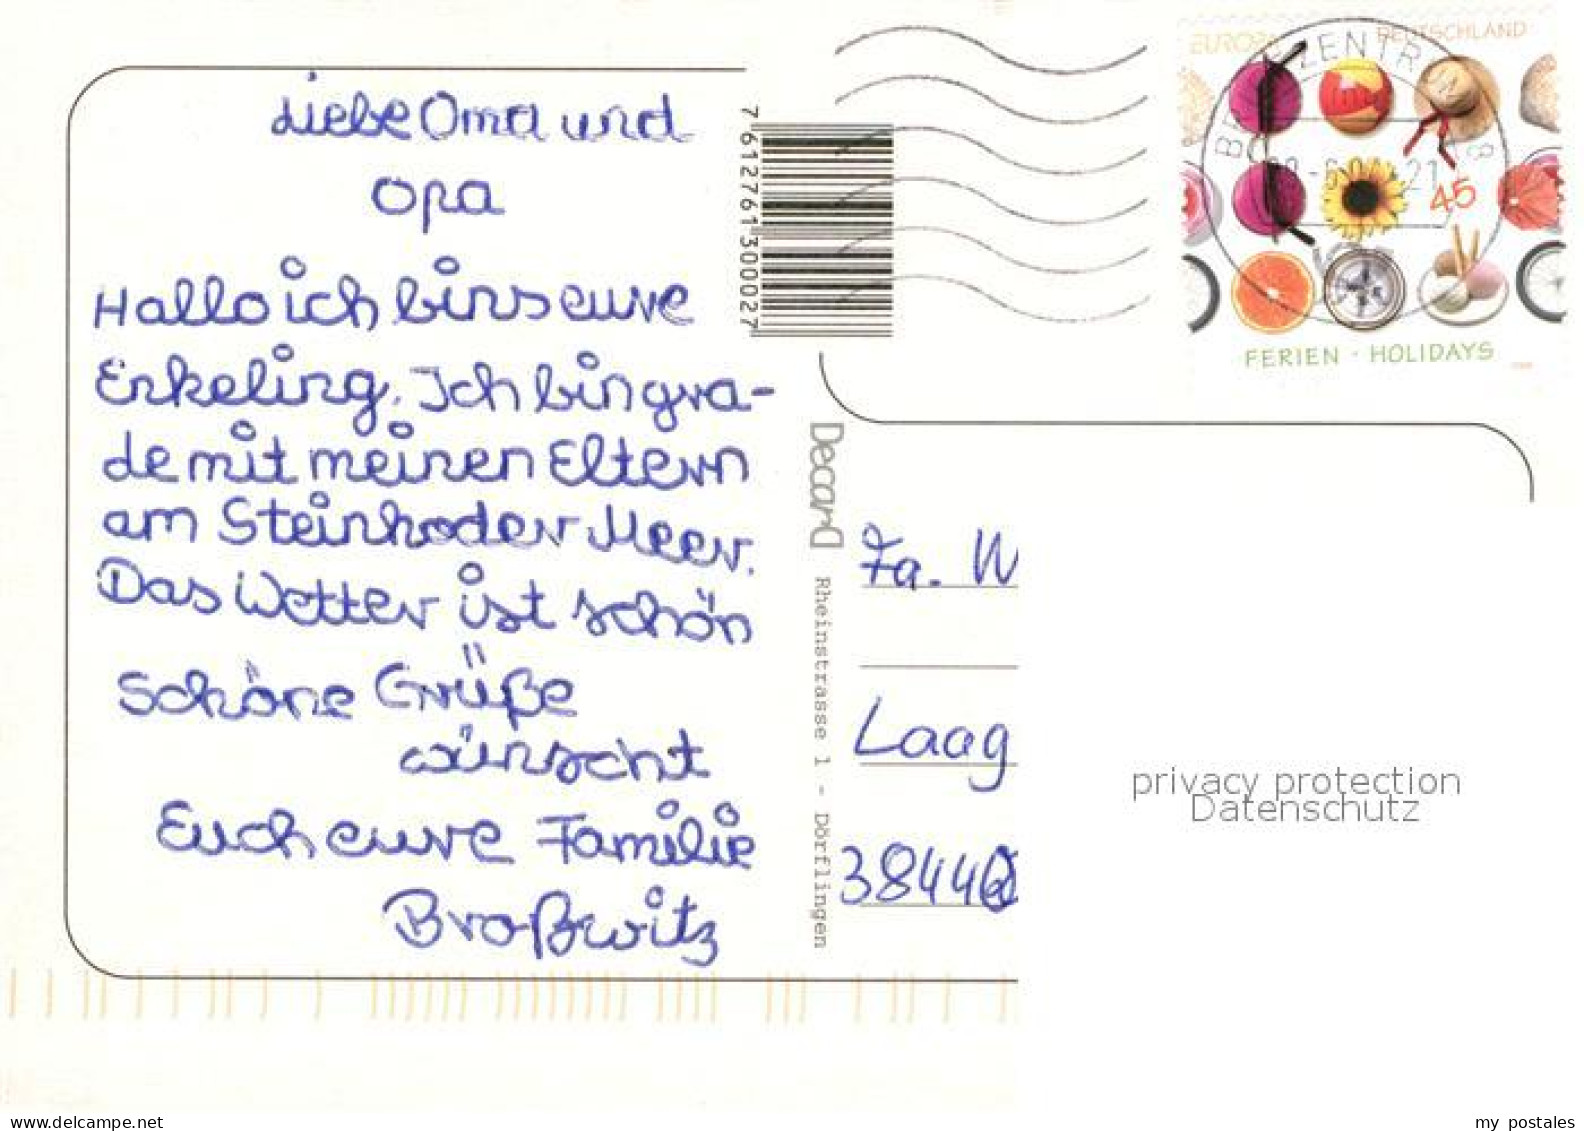 Liebe Oma und
Opa
Hallo ich bins eure
Enkeling. Ich bin gra-
de mit meinen Eltern
am Steinhoder Meer.
Das Wetter ist schön
Schöne Grüße
wünscht
Euch eure Familie
Broßwitz
7 612761 300027
Decard
Rheinstrasse 1 - Dörflingen
EUROPA DEUTSCHLAND
45
FERIEN · HOLIDAYS
BRIEFZENTRUM
21
Fa. W
Laag
38446
privacy protection
Datenschutz
www.delcampe.net
my_postales